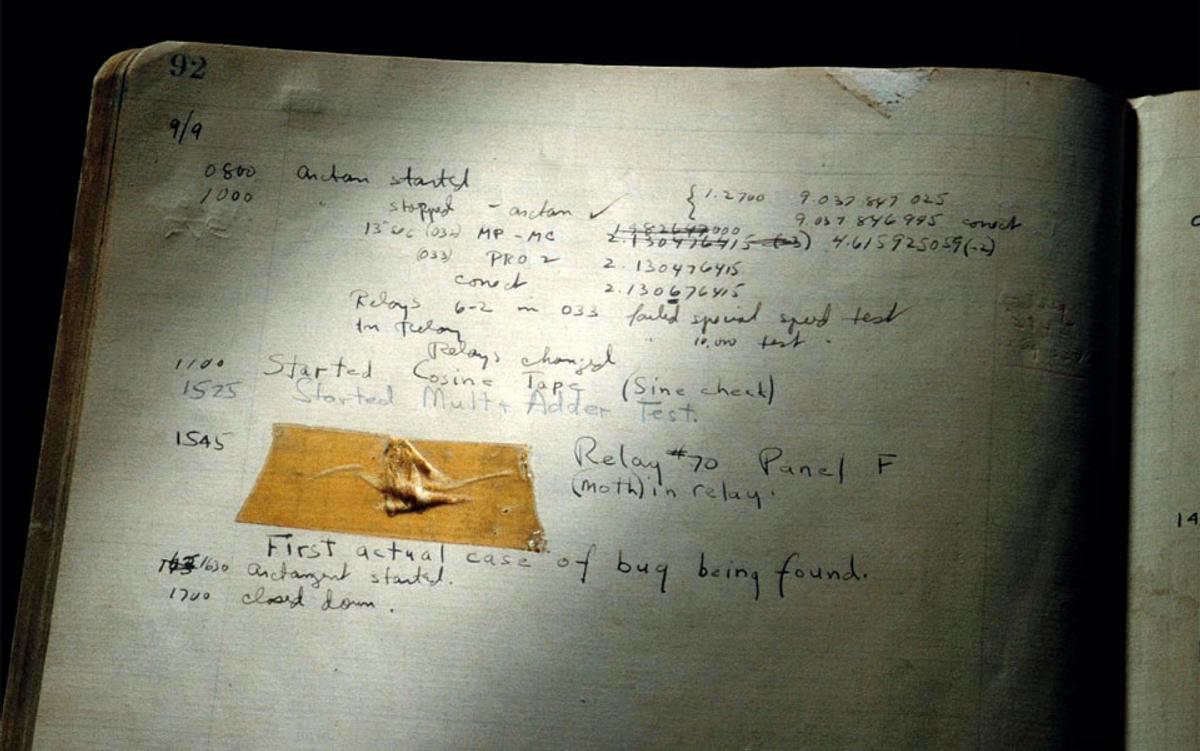 92
9/9
0800 arctan started
1000 " stopped - arctan ✓ { 1.2700 9.037 847 025
9.037 846 995 correct
13"uc (032) MP - MC 2.130476415 (-3) 4.615925059(-2)
(033) PRO 2 2.130476415
correct 2.130676415
Relays 6-2 in 033 failed special speed test
In Relay " 10,000 test .
Relays changed
1100 Started Cosine Tape (Sine check)
1525 Started Mult + Adder Test.
1545 Relay #70 Panel F
(moth) in relay.
First actual case of bug being found.
1630 arctangent started.
1700 closed down .